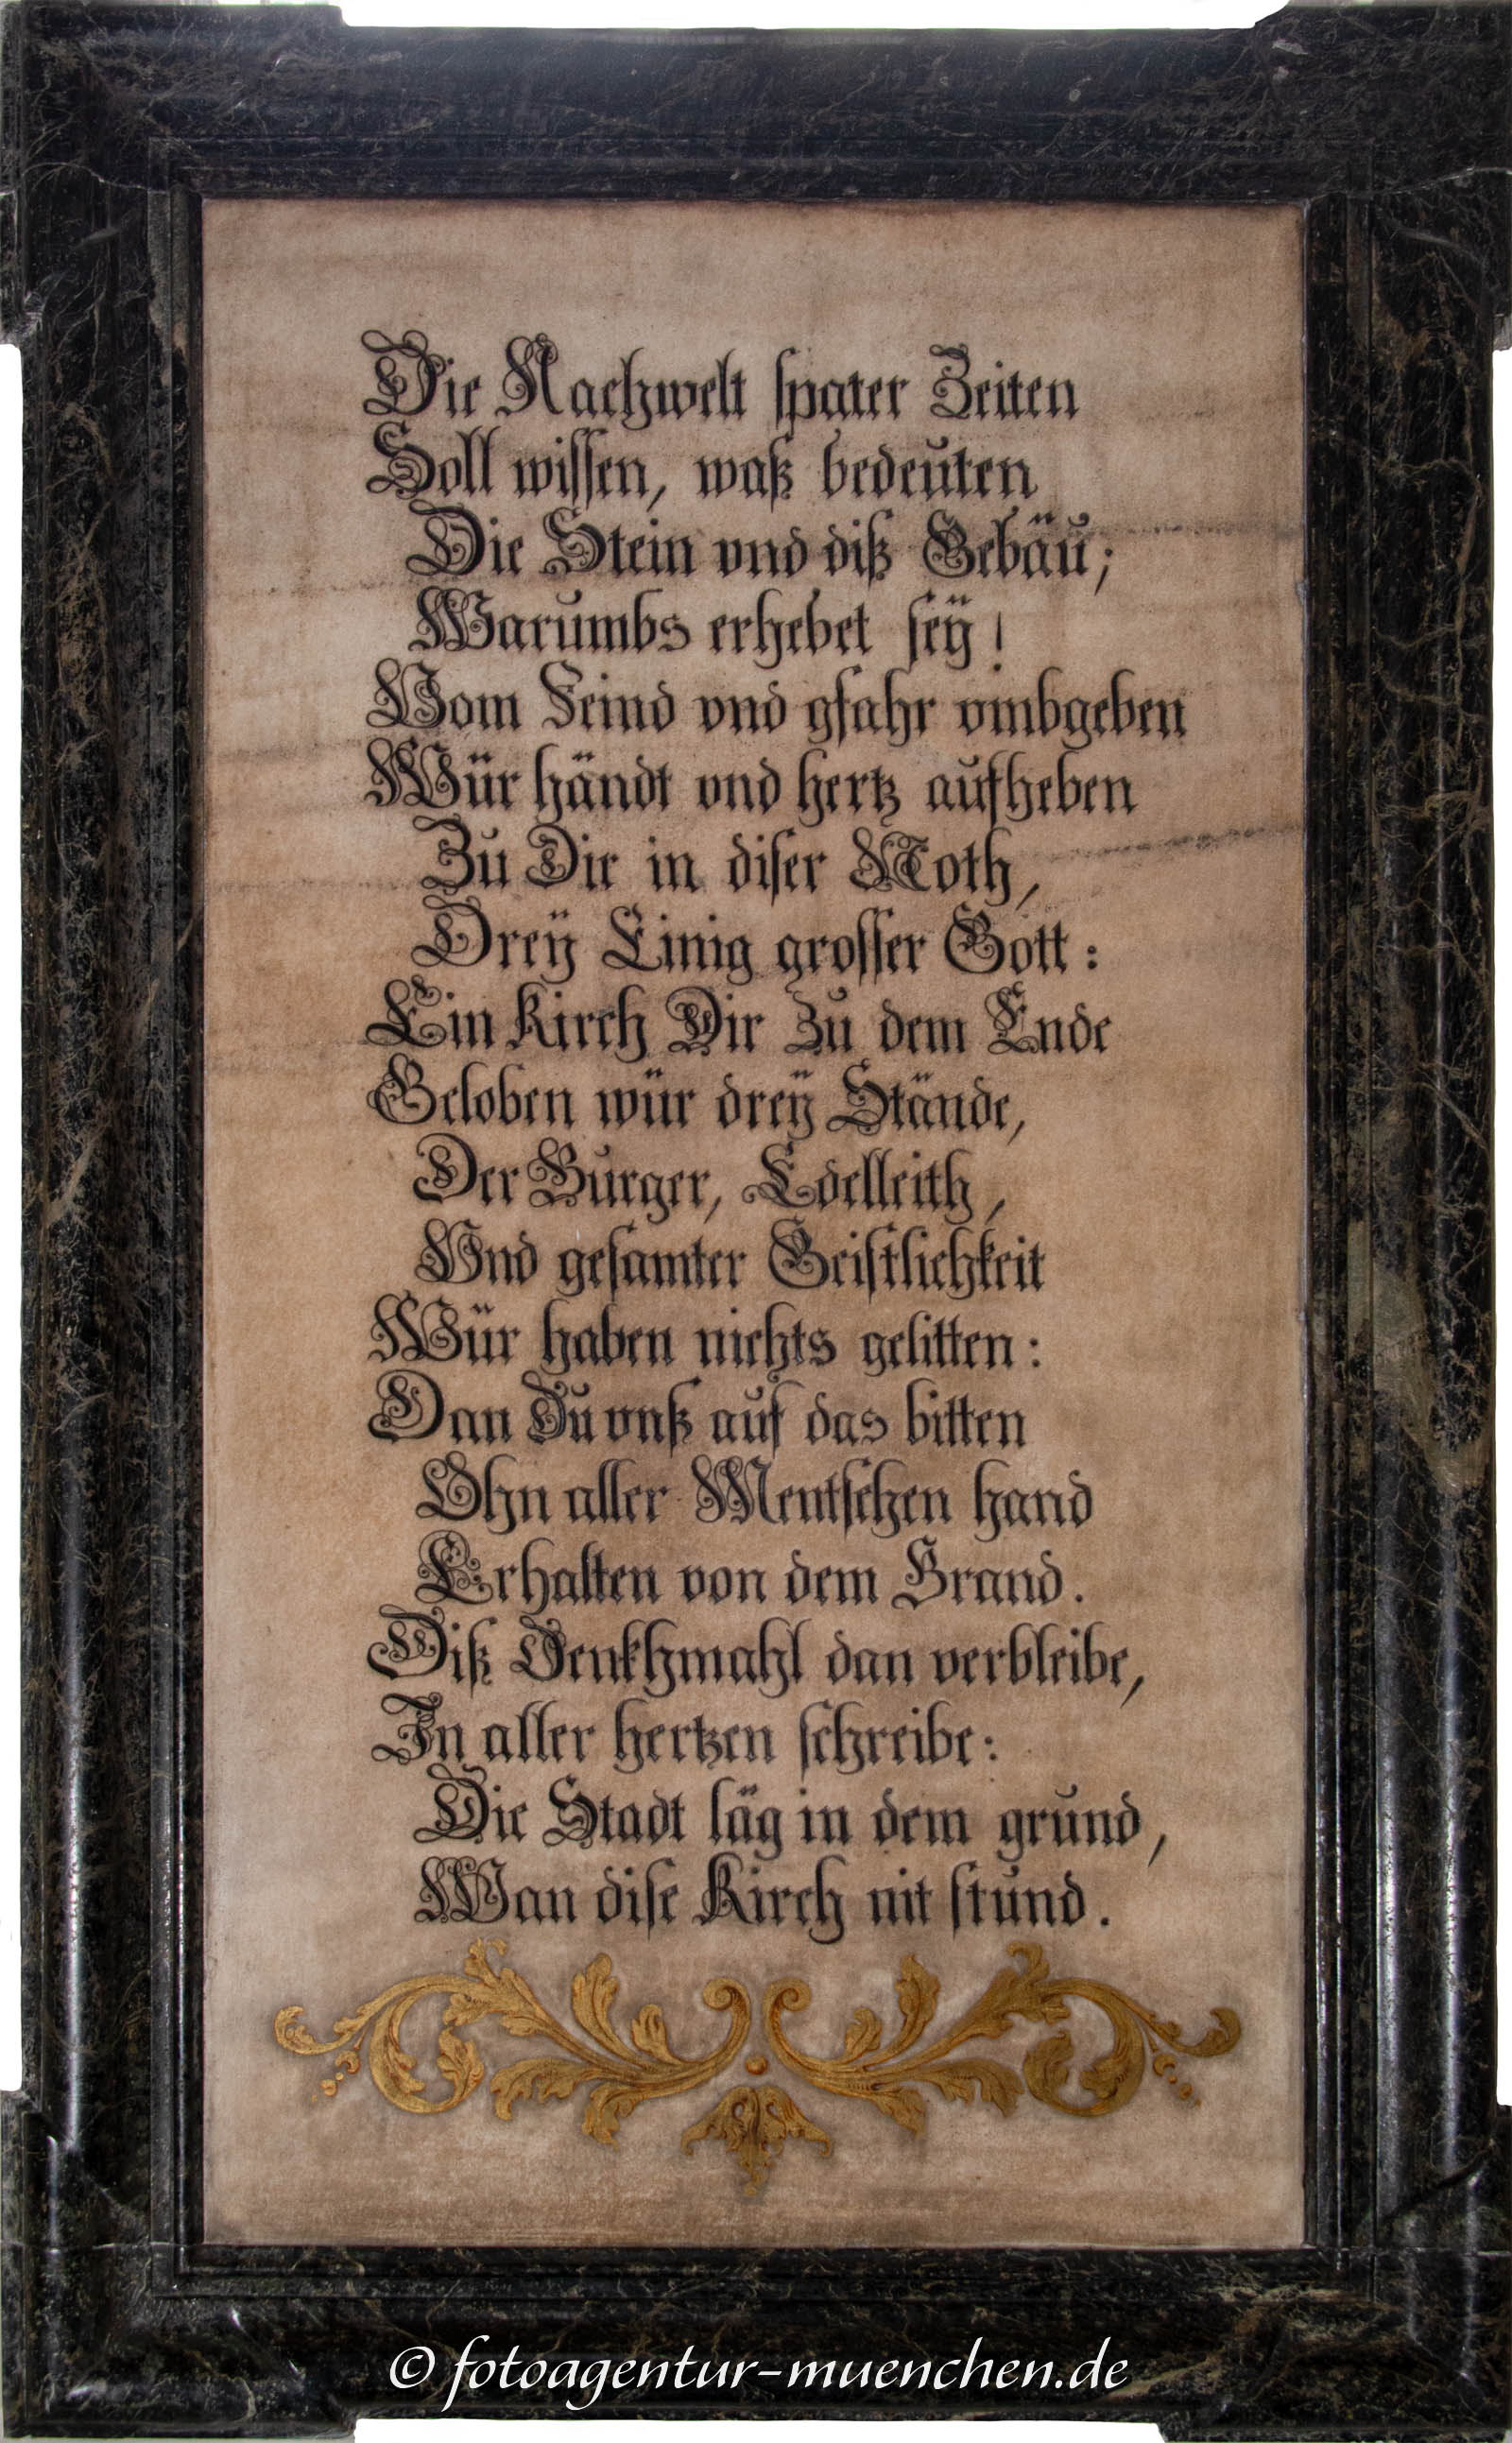 Die Nachwelt spater Zeiten
Soll wissen, waß bedeuten
Die Stein vnd diß Gebäu;
Warumbs erhebet seÿ!
Vom Feind vnd gfahr vmbgeben
Wür händt vnd hertz aufheben
Zu Dir in diser Noth,
Dreÿ Einig grosser Gott:
Ein Kirch Dir Zu dem Ende
Geloben wür dreÿ Stände,
Der Burger, Edelleith,
Vnd gesamter Geistlichkeit
Wür haben nichts gelitten:
Dan Du vnß auf das bitten
Ohn aller Mentschen hand
Erhalten von dem Brand.
Diß Denkhmahl dan verbleibe,
In aller hertzen schreibe:
Die Stadt läg in dem grund,
Wan dise Kirch nit stund.
© fotoagentur-muenchen.de